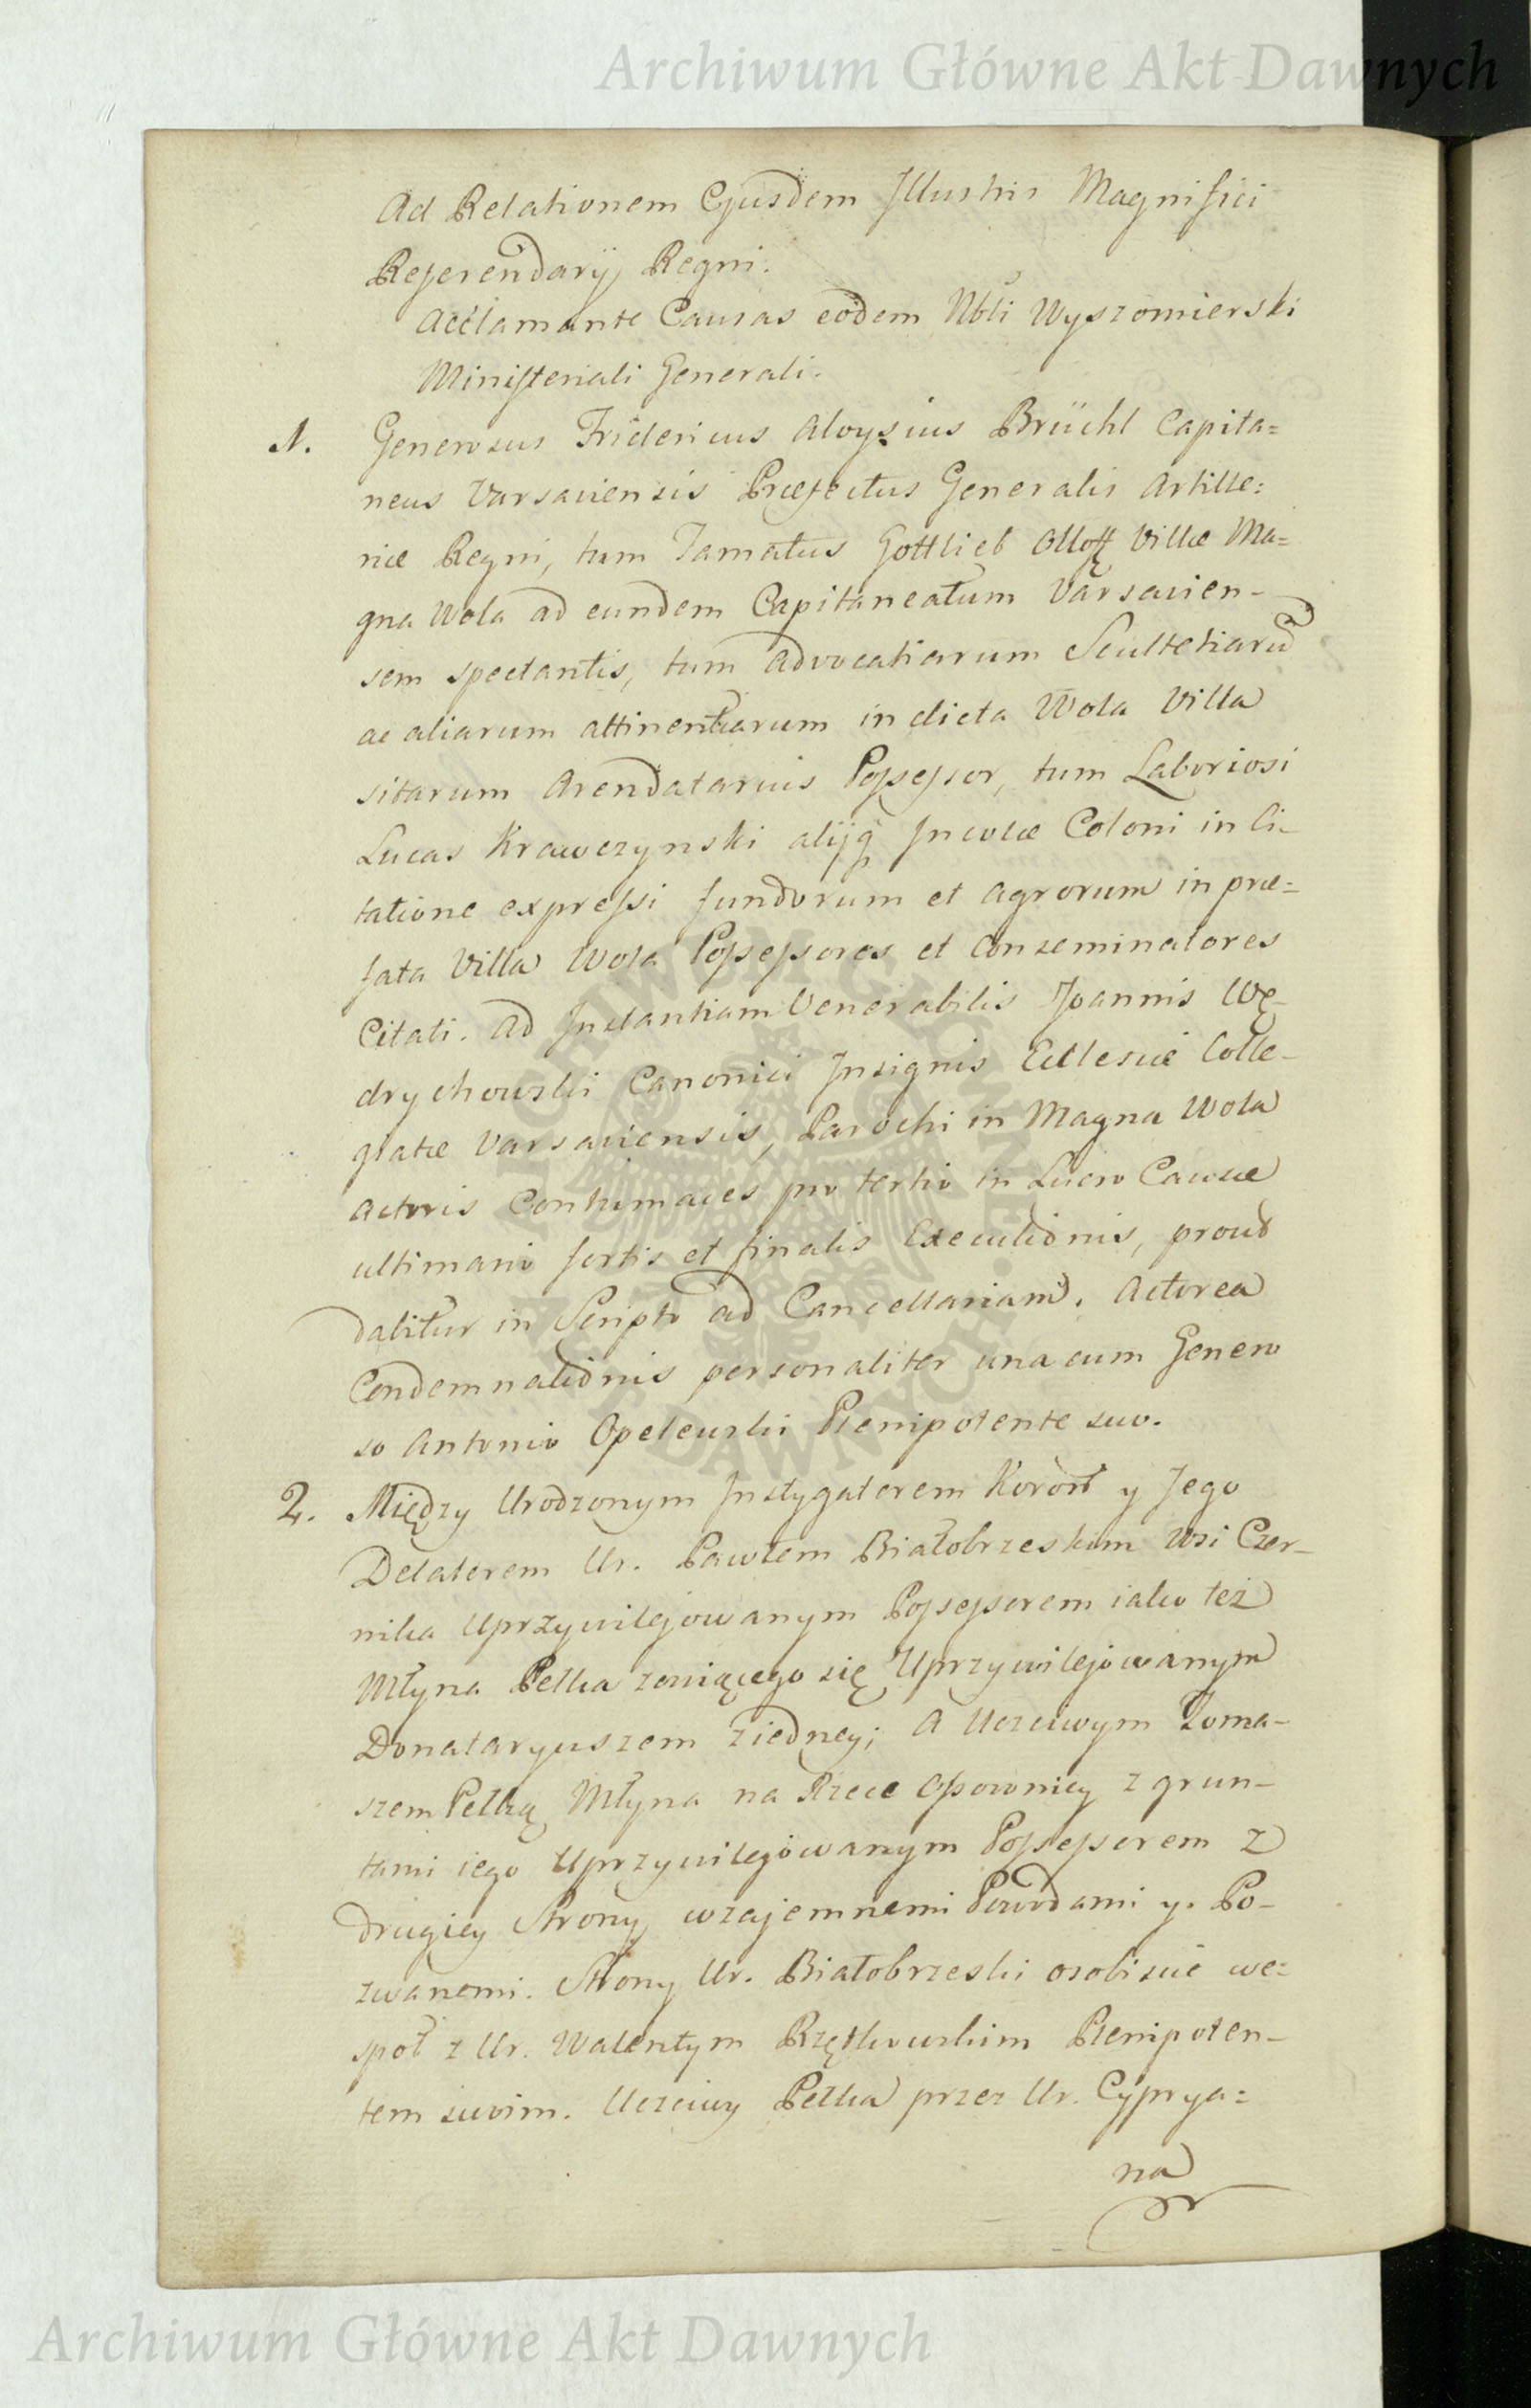 Archiwum Główne Akt Dawnych
Ad Relationem Ejusdem Illustris Magnifici
Referendarij Regni.
Acclamante Causas eodem Nbli Wyszomierski
Ministeriali Generali.
1. Generosus Fridericus Aloysius Brüchl Capita=
neus Varsaviensis Præfectus Generalis Artille=
riæ Regni, tum Famatus Gottlieb Olloff Villæ Ma=
gna Wola ad eundem Capitaneatum Varsavien-
sem spectantis, tum Advocatiarum Scultetiarū
ac aliarum attinentiarum in dicta Wola Villa
sitarum Arendatarius Possessor, tum Laboriosi
Lucas Krawczynski alijq Incolæ Coloni in Ci-
tatione expressi fundorum et Agrorum in præ=
fata Villa Wola Possessores et Conseminatores
Citati. Ad Instantiam Venerabilis Joannis Wę-
drychowski Canonici Insignis Ecclesiæ Colle-
giatæ Varsaviensis, Parochi in Magna Wola
Actoris Contumaces pro tertio in Lucro Causæ
ultimario fortis et finalis Executionis, prout
dabitur in Scripto ad Cancellariam. Actorea
Condemnationis personaliter una cum Genero
so Antonio Opelewski Plenipotente suo.
2. Między Urodzonym Instygatorem Koron y Jego
Delatorem Ur. Pawłem Białobrzeskim Wsi Czer-
nika Uprzywilejowanym Possessorem iako też
Młyna Pełka zowiącego się Uprzywilejowanym
Donataryuszem z iedney; A Uczciwym Toma-
szem Pełką Młyna na Rzece Ossownicy z grun-
tami iego Uprzywilejowanym Possessorem z
drugiey Strony wzajemnemi Powodami y. Po-
zwanemi. Strony Ur. Białobrzeski osobiscie we=
społ z Ur. Walentym Rzętkowskim Plenipoten-
tem swoim. Uczciwy Pełka przez Ur. Cyprya=
na
ARCHIWUM GŁÓWNE AKT DAWNYCH
Archiwum Główne Akt Dawnych